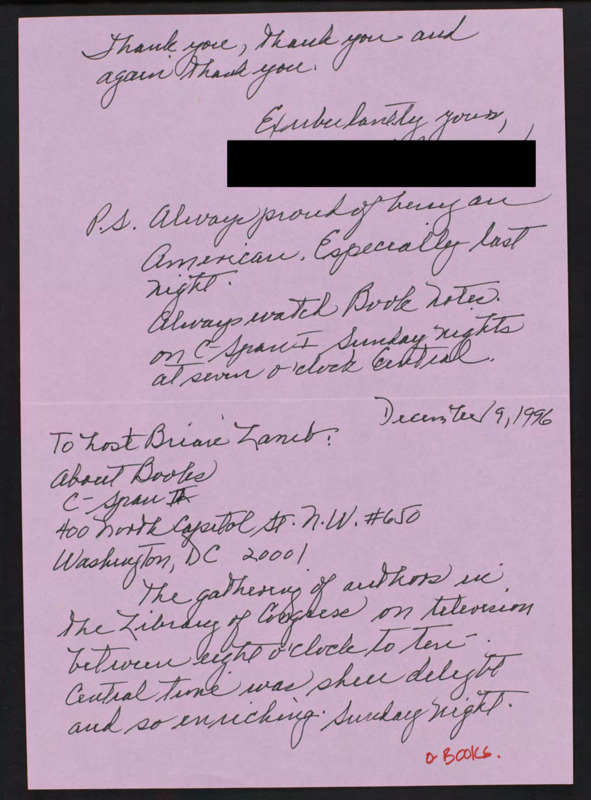 Thank you, thank you and
again thank you.
Exubulantly yours,
P.S. Always proud of being an
American. Especially last
night.
Always watch Book Notes.
on C-Span I Sunday nights
at seven o'clock Central.
December 9, 1996
To host Briane Lamb:
About Books
C-Span II
400 North Capitol St. N.W. #650
Washington, DC 20001
The gathering of authors in
the Library of Congress on television
between eight o'clock to ten -
Central time was sheer delight
and so enriching. Sunday night.
BOOKS.